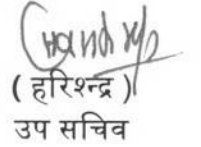 ( हरिश्चन्द्र )
उप सचिव